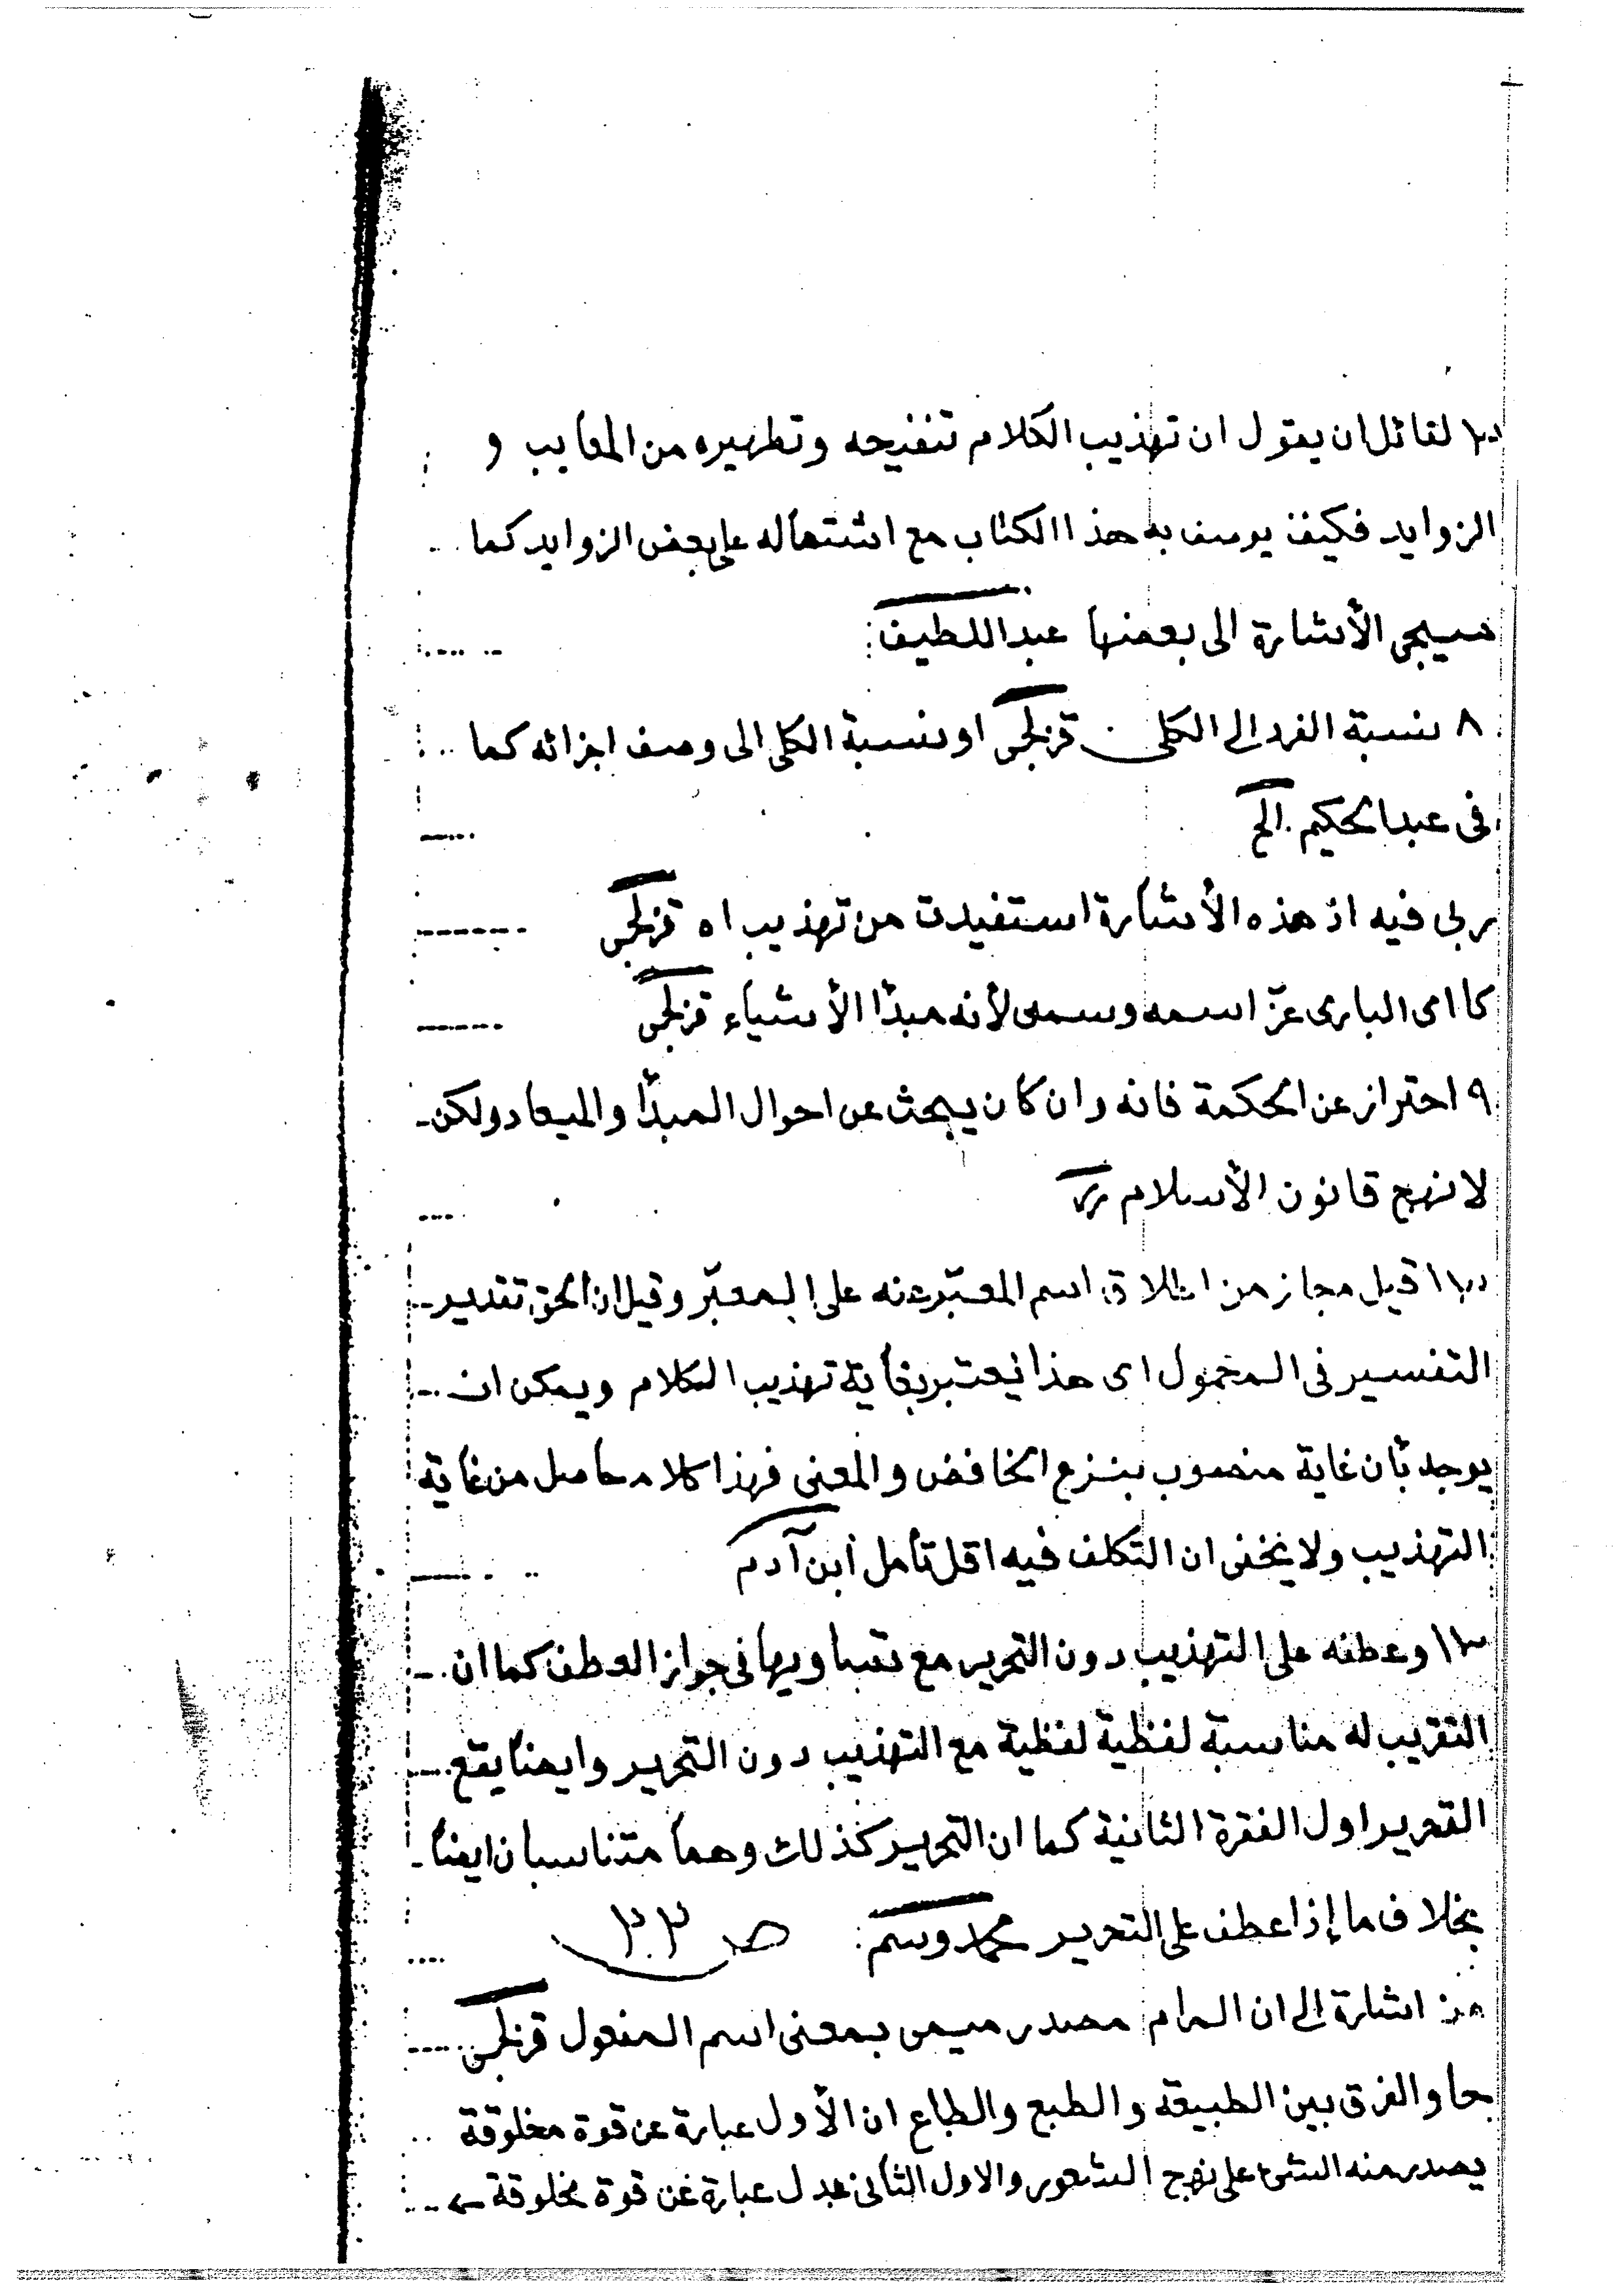 لقائل ان يقول ان تهذيب الكلام تنقيحه وتطهيره من المعايب و
الزوايد فكيف يوصف به هذا الكتاب مع اشتماله على بعض الزوايد كما
سيجى الأشارة الى بعضها عبد اللطيف
٨ نسبة الفرد الى الكلى قزلجى او نسبة الكلى الى وصف اجزائه كما
فى عبد الحكيم الخ
بى فيه اذ هذه الأشارة استفيدت من تهذيب اه قزلجى
كا اى البارى عزّ اسمه وسمى لأنه مبدأ الأشياء قزلجى
٩ احتراز عن الحكمة فانه وان كان يبحث عن احوال المبدأ والميعاد ولكن
لا نهج قانون الأسلام
قيل مجاز من اطلاق اسم المعبّر عنه على المعبّر وقيل ان الحق تقدير
التفسير فى المحمول اى هذا يعتبر بغاية تهذيب الكلام ويمكن ان
يوجد بأن غاية منصوب بنزع الخافض والمعنى فهذا كلام حاصل من غاية
التهذيب ولا يخفى ان التكلف فيه اقل تأمل ابن آدم
١٣ وعطفه على التهذيب دون التحرير مع تساويها فى جواز العطف كما ان
التقريب له مناسبة لفظية لفظية مع التهذيب دون التحرير وايضاً يقع
التحرير اول الفقرة الثانية كما ان التحرير كذلك وهما متناسبان ايضاً
بخلاف ما إذا عطف على التحرير محمد وسيم ص
اشارة الى ان المرام مصدر ميمى بمعنى اسم المفعول قزلجى
جا والفرق بين الطبيعة والطبع والطباع ان الأول عبارة عن قوة مخلوقة
يصدر منه الشئ على نهج الشعور والاول الثانى عبارة عن قوة مخلوقة ←